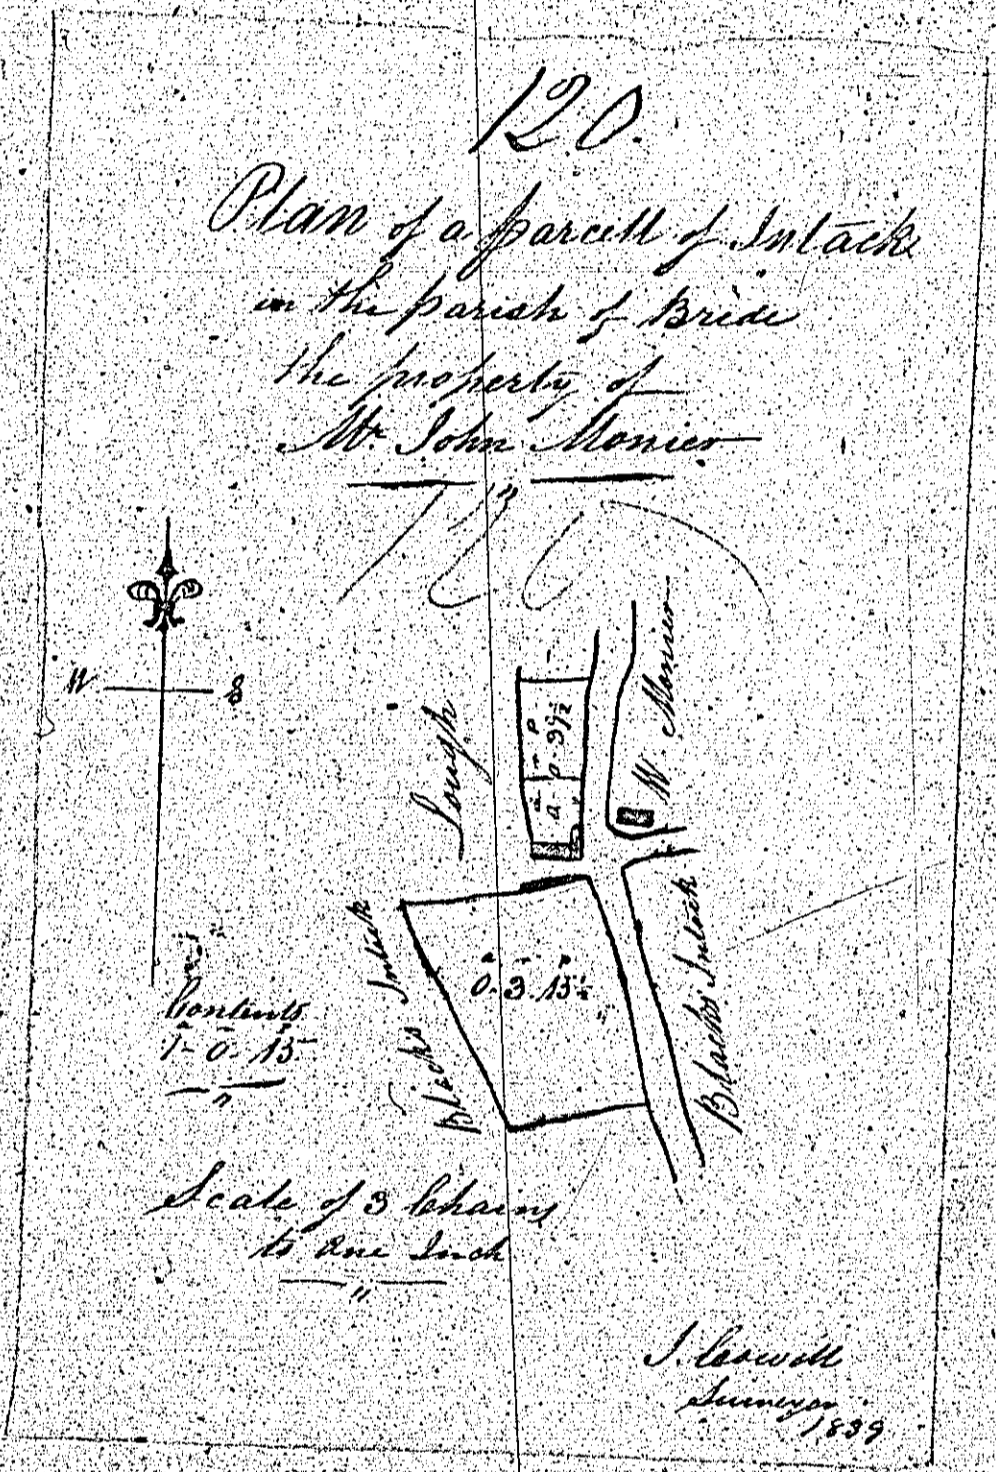 120.
Plan of a parcell of Intacke
in the parish of Bride
the property of
Mr. John Monier
120
W
Lough
W. Monier
a - - p
0 - 0 - 39½
Blacks Intack
a - - p
0-3-15½
Blacks Intack
Contents
1-0-15
Scale of 3 Chains
to One Inch
J. Cowell
Surveyor
1839